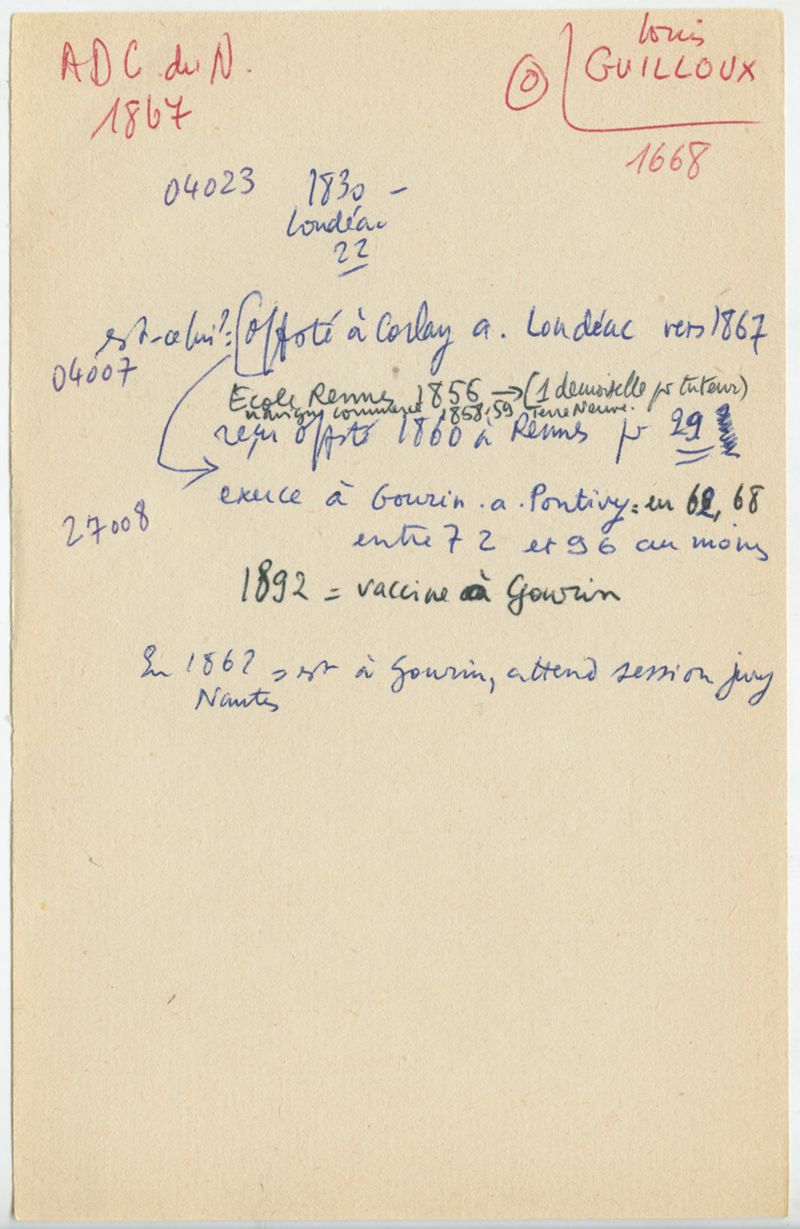 ADC du N.
1867
Louis
GUILLOUX
0
1668
04023 1830 -
Loudéac
22
est-ce lui?: Offsté à Corlay a. Loudéac vers 1867
04007
Ecole Rennes 1856 → (1 demoiselle pr tuteur)
navigue commerce 1858, 59 Terre Neuve.
reçu offsté 1860 à Rennes pr 29
exerce à Gourin . a . Pontivy = en 62, 68
27008
entre 72 et 96 au moins
1892 = vaccine à Gourin
En 1862 = est à Gourin, attend session jury
Nantes